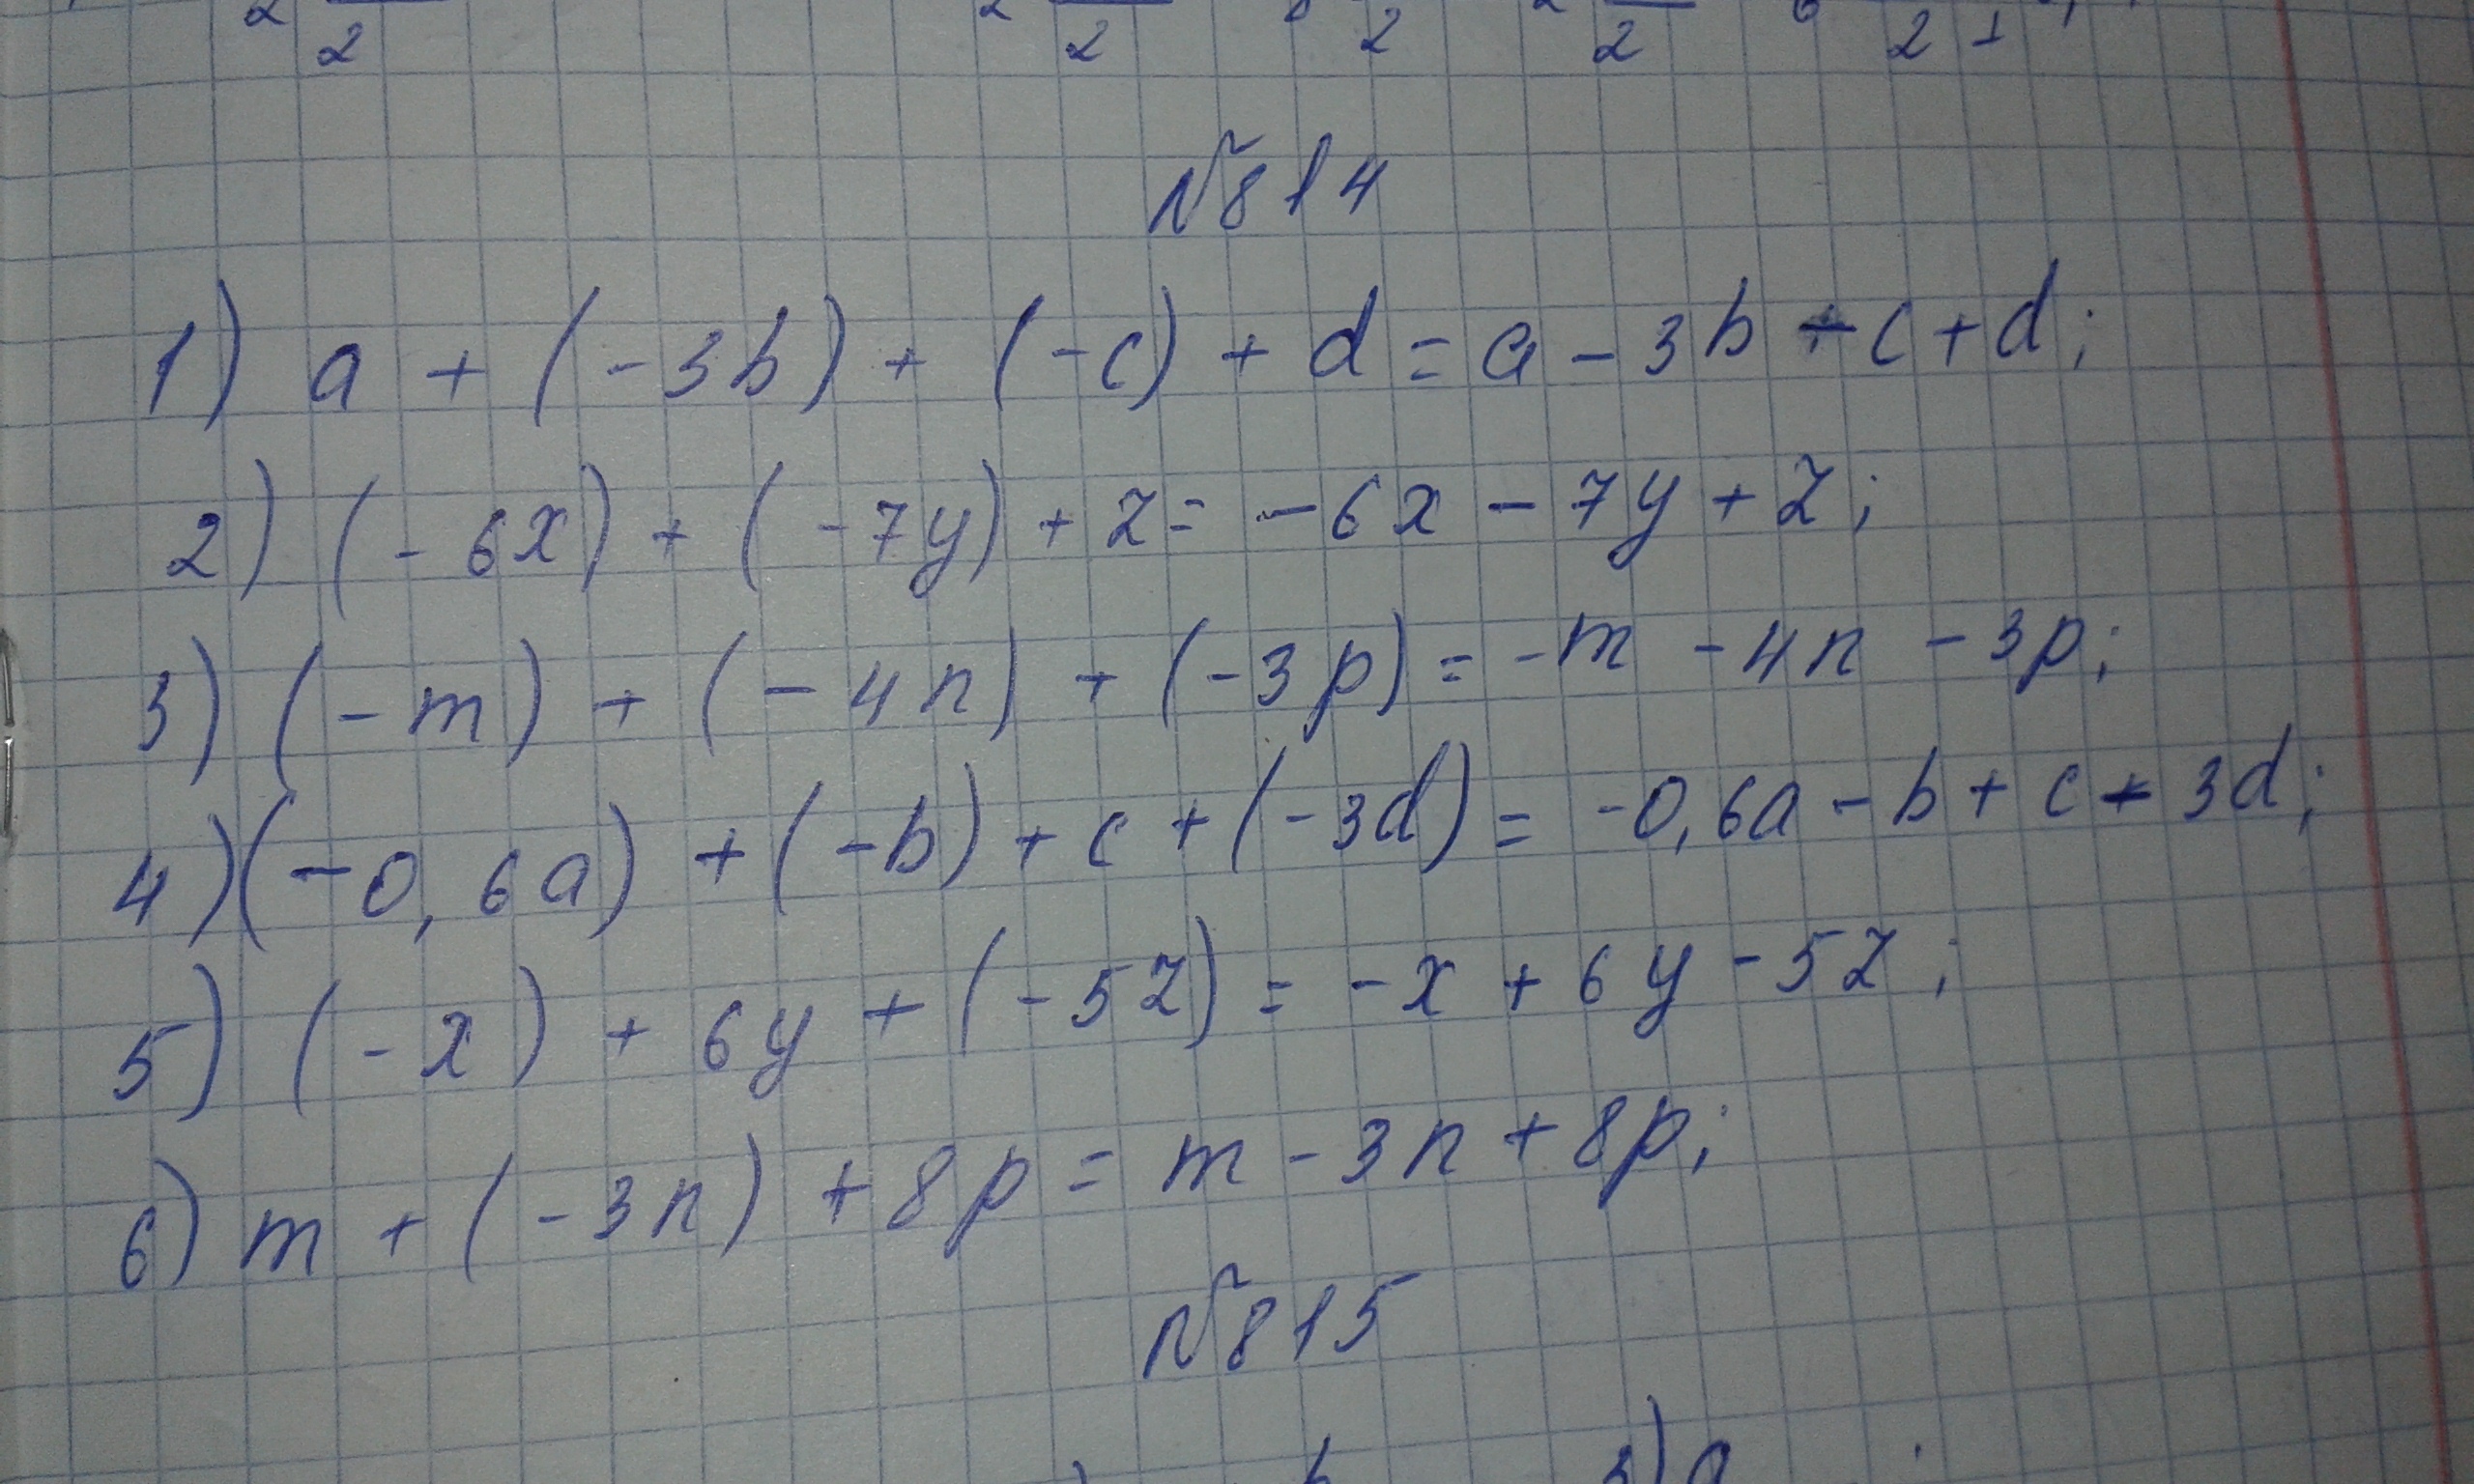 2 2 2 2 2 2 2 2 1
№814
1) a + (-3b) + (-c) + d = a - 3b - c + d;
2) (-6x) + (-7y) + z = -6x - 7y + z;
3) (-m) + (-4n) + (-3p) = -m - 4n - 3p;
4) (-0,6a) + (-b) + c + (-3d) = -0,6a - b + c - 3d;
5) (-x) + 6y + (-5z) = -x + 6y - 5z;
6) m + (-3n) + 8p = m - 3n + 8p;
№815